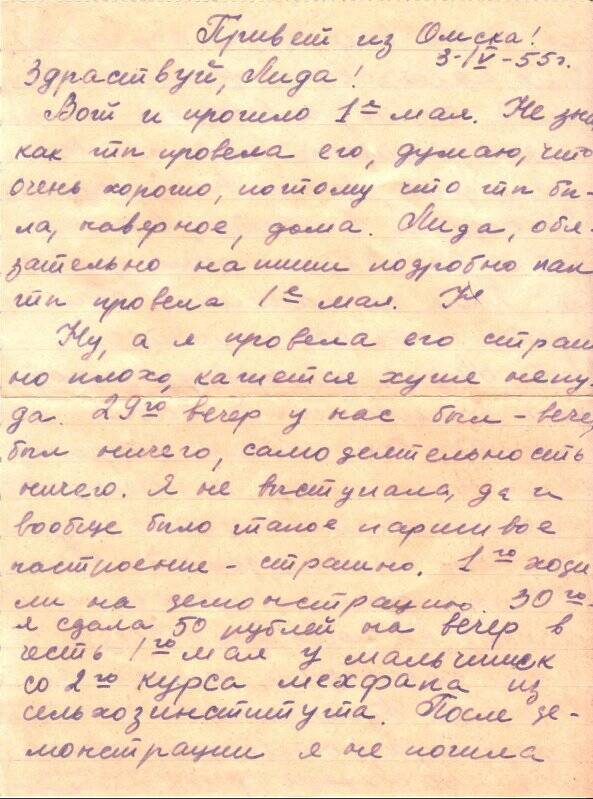 Привет из Омска!
3-IV-55г.
Здраствуй, Лида!
Вот и прошло 1е мая. Не зна
как ты провела его, думаю, что
очень хорошо, потому что ты бы-
ла, наверное, дома. Лида, обя-
зательно напиши подробно как
ты провела 1е мая. Я
Ну, а я провела его страш
но плохо, кажется хуже неку-
да. 29го вечер у нас был – вече
был ничего, самодеятельность
ничего. Я не выступала, да и
вообще было такое паршивое
настроение – страшно. 1го ходи
ли на демонстрацию. 30го-
я сдала 50 рублей на вечер в
честь 1го мая у мальчишек
со 2го курса мехфака из
сельхозинститута. После де-
монстрации я не пошла